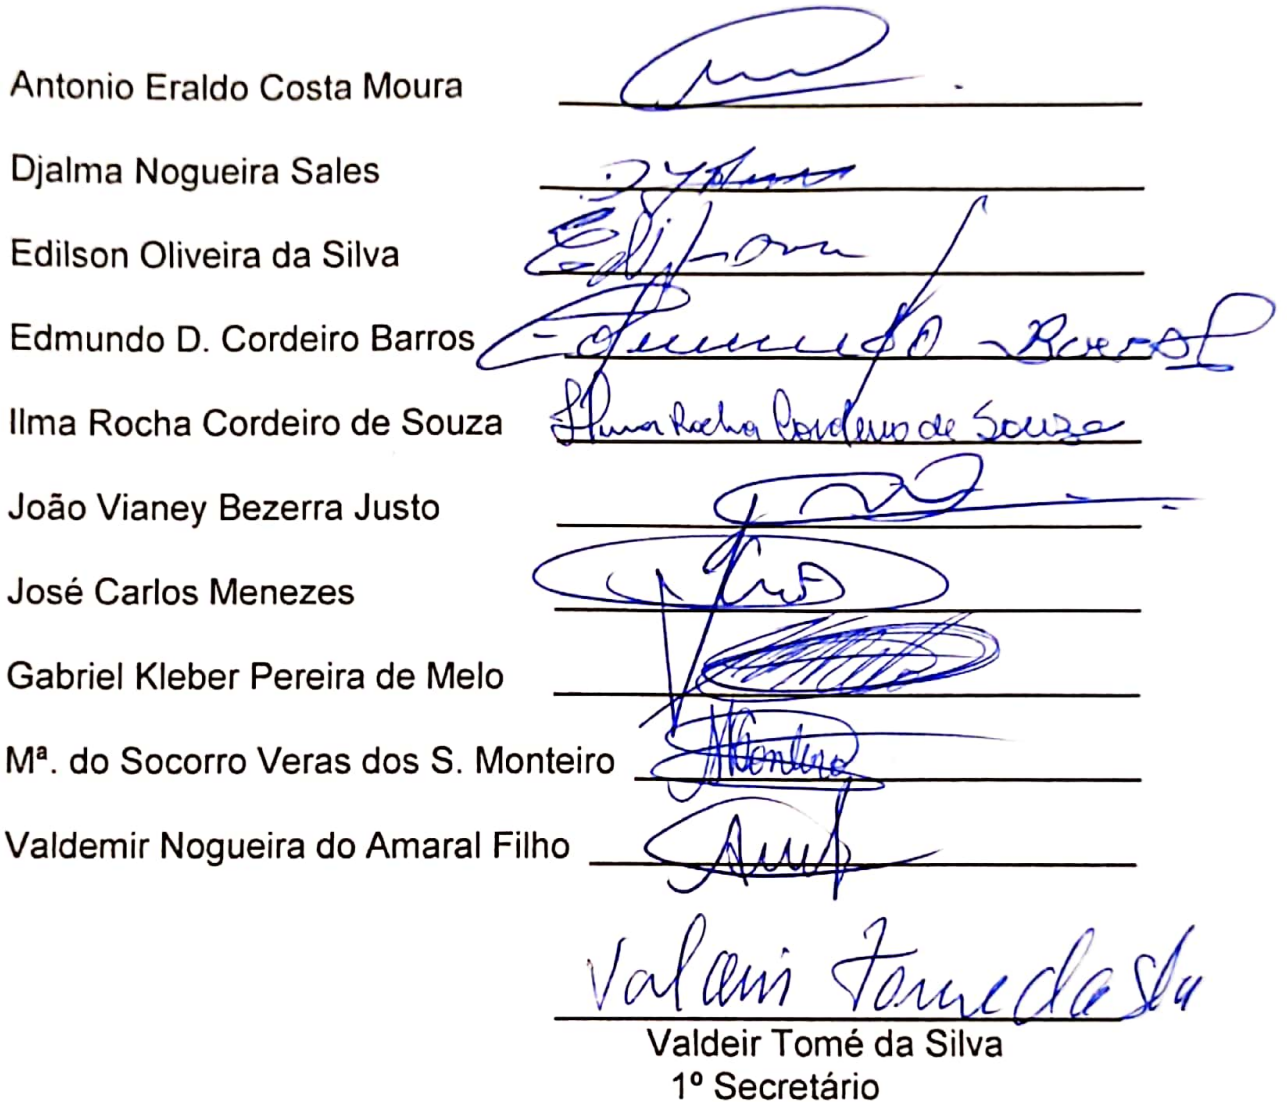 Antonio Eraldo Costa Moura
Djalma Nogueira Sales
Edilson Oliveira da Silva
Edmundo D. Cordeiro Barros Edmundo Barros
Ilma Rocha Cordeiro de Souza Ilma Rocha Cordeiro de Souza
João Vianey Bezerra Justo
José Carlos Menezes
Gabriel Kleber Pereira de Melo
Mª. do Socorro Veras dos S. Monteiro Monteiro
Valdemir Nogueira do Amaral Filho
Tome da
Valdeir Tomé da Silva
1º Secretário